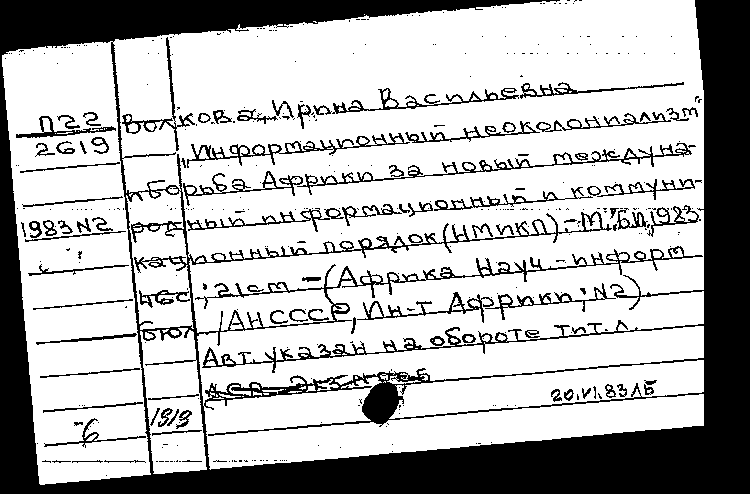 П22 Волкова, Ирина Васильевна
2619 „Информационный неоколониализм"
и борьба Африки за новый междуна-
1983 N2 родный информационный и коммуни-
кационный порядок (НМИКП).-М., Б.и., 1983
46с; 21см -(Африка Науч.-информ
бюл /АНСССР, Ин-т Африки; N2).
Авт. указан на обороте тит. л.
-6 1313 20.VI.83